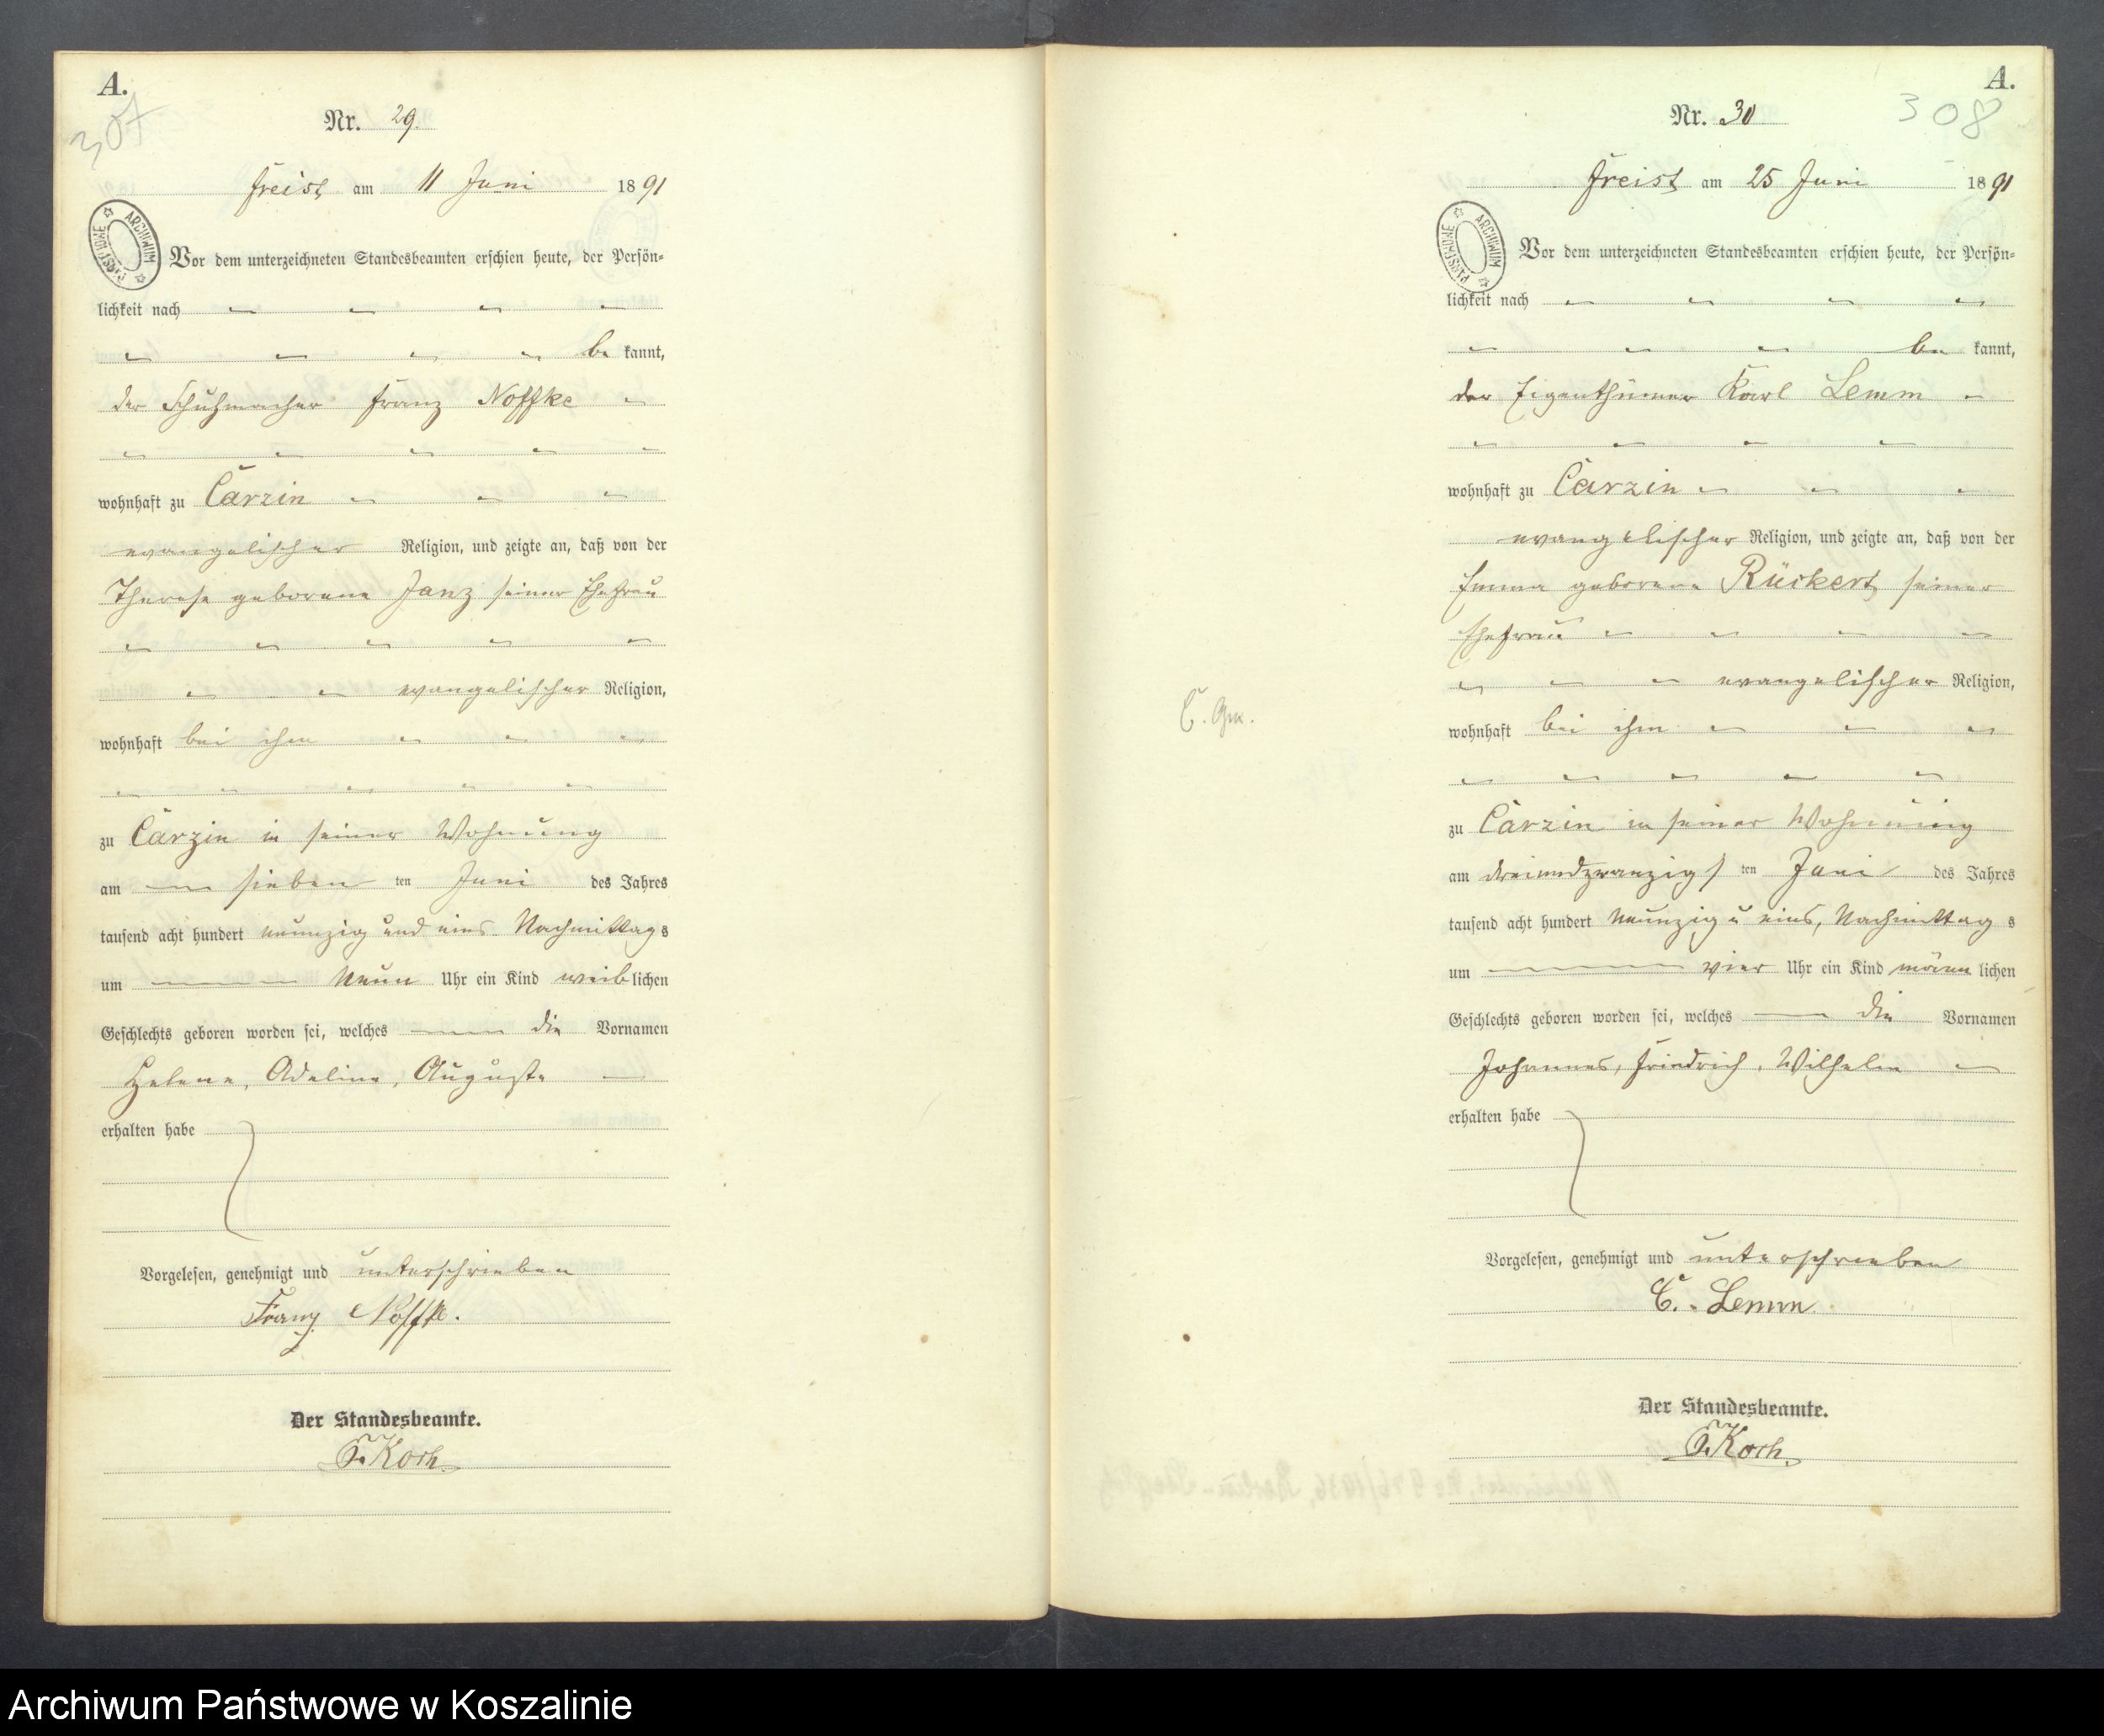 A.
307
Nr. 29.
Freist am 11 Juni 1891
ARCHIWUM PAŃSTWOWE
Vor dem unterzeichneten Standesbeamten erschien heute, der Persön-
lichkeit nach
be kannt,
der Schuhmacher Franz Noffke
wohnhaft zu Carzin
evangelischer Religion, und zeigte an, daß von der
Therese geborene Janz seiner Ehefrau
evangelischer Religion,
wohnhaft bei ihm
zu Carzin in seiner Wohnung
am sieben ten Juni des Jahres
tausend acht hundert neunzig und eins Nachmittags
um neun Uhr ein Kind weiblichen
Geschlechts geboren worden sei, welches die Vornamen
Helene, Adeline, Auguste
erhalten habe
Vorgelesen, genehmigt und unterschrieben
Franz Noffke.
Der Standesbeamte.
Koch
A.
308
Nr. 30
Freist am 25 Juni 1891
ARCHIWUM PAŃSTWOWE
Vor dem unterzeichneten Standesbeamten erschien heute, der Persön-
lichkeit nach
be kannt,
der Eigenthümer Karl Lemm
wohnhaft zu Carzin
evangelischer Religion, und zeigte an, daß von der
Emma geborene Rückert, seiner
Ehefrau
evangelischer Religion,
wohnhaft bei ihm
zu Carzin in seiner Wohnung
am dreiundzwanzigs ten Juni des Jahres
tausend acht hundert neunzig u eins, Nachmittags
um vier Uhr ein Kind männlichen
Geschlechts geboren worden sei, welches die Vornamen
Johannes, Friedrich, Wilhelm
erhalten habe
Vorgelesen, genehmigt und unterschrieben
C. Lemm
Der Standesbeamte.
Koch.
Archiwum Państwowe w Koszalinie